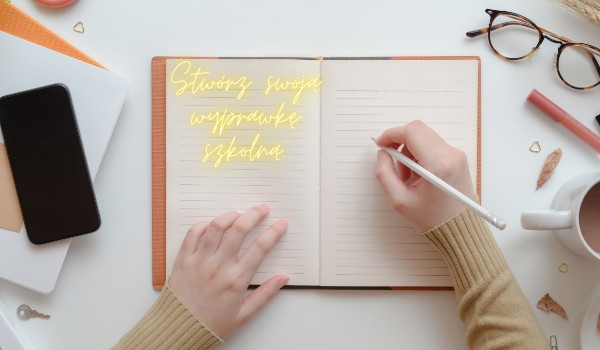 Stwórz swoją
wyprawkę
szkolną